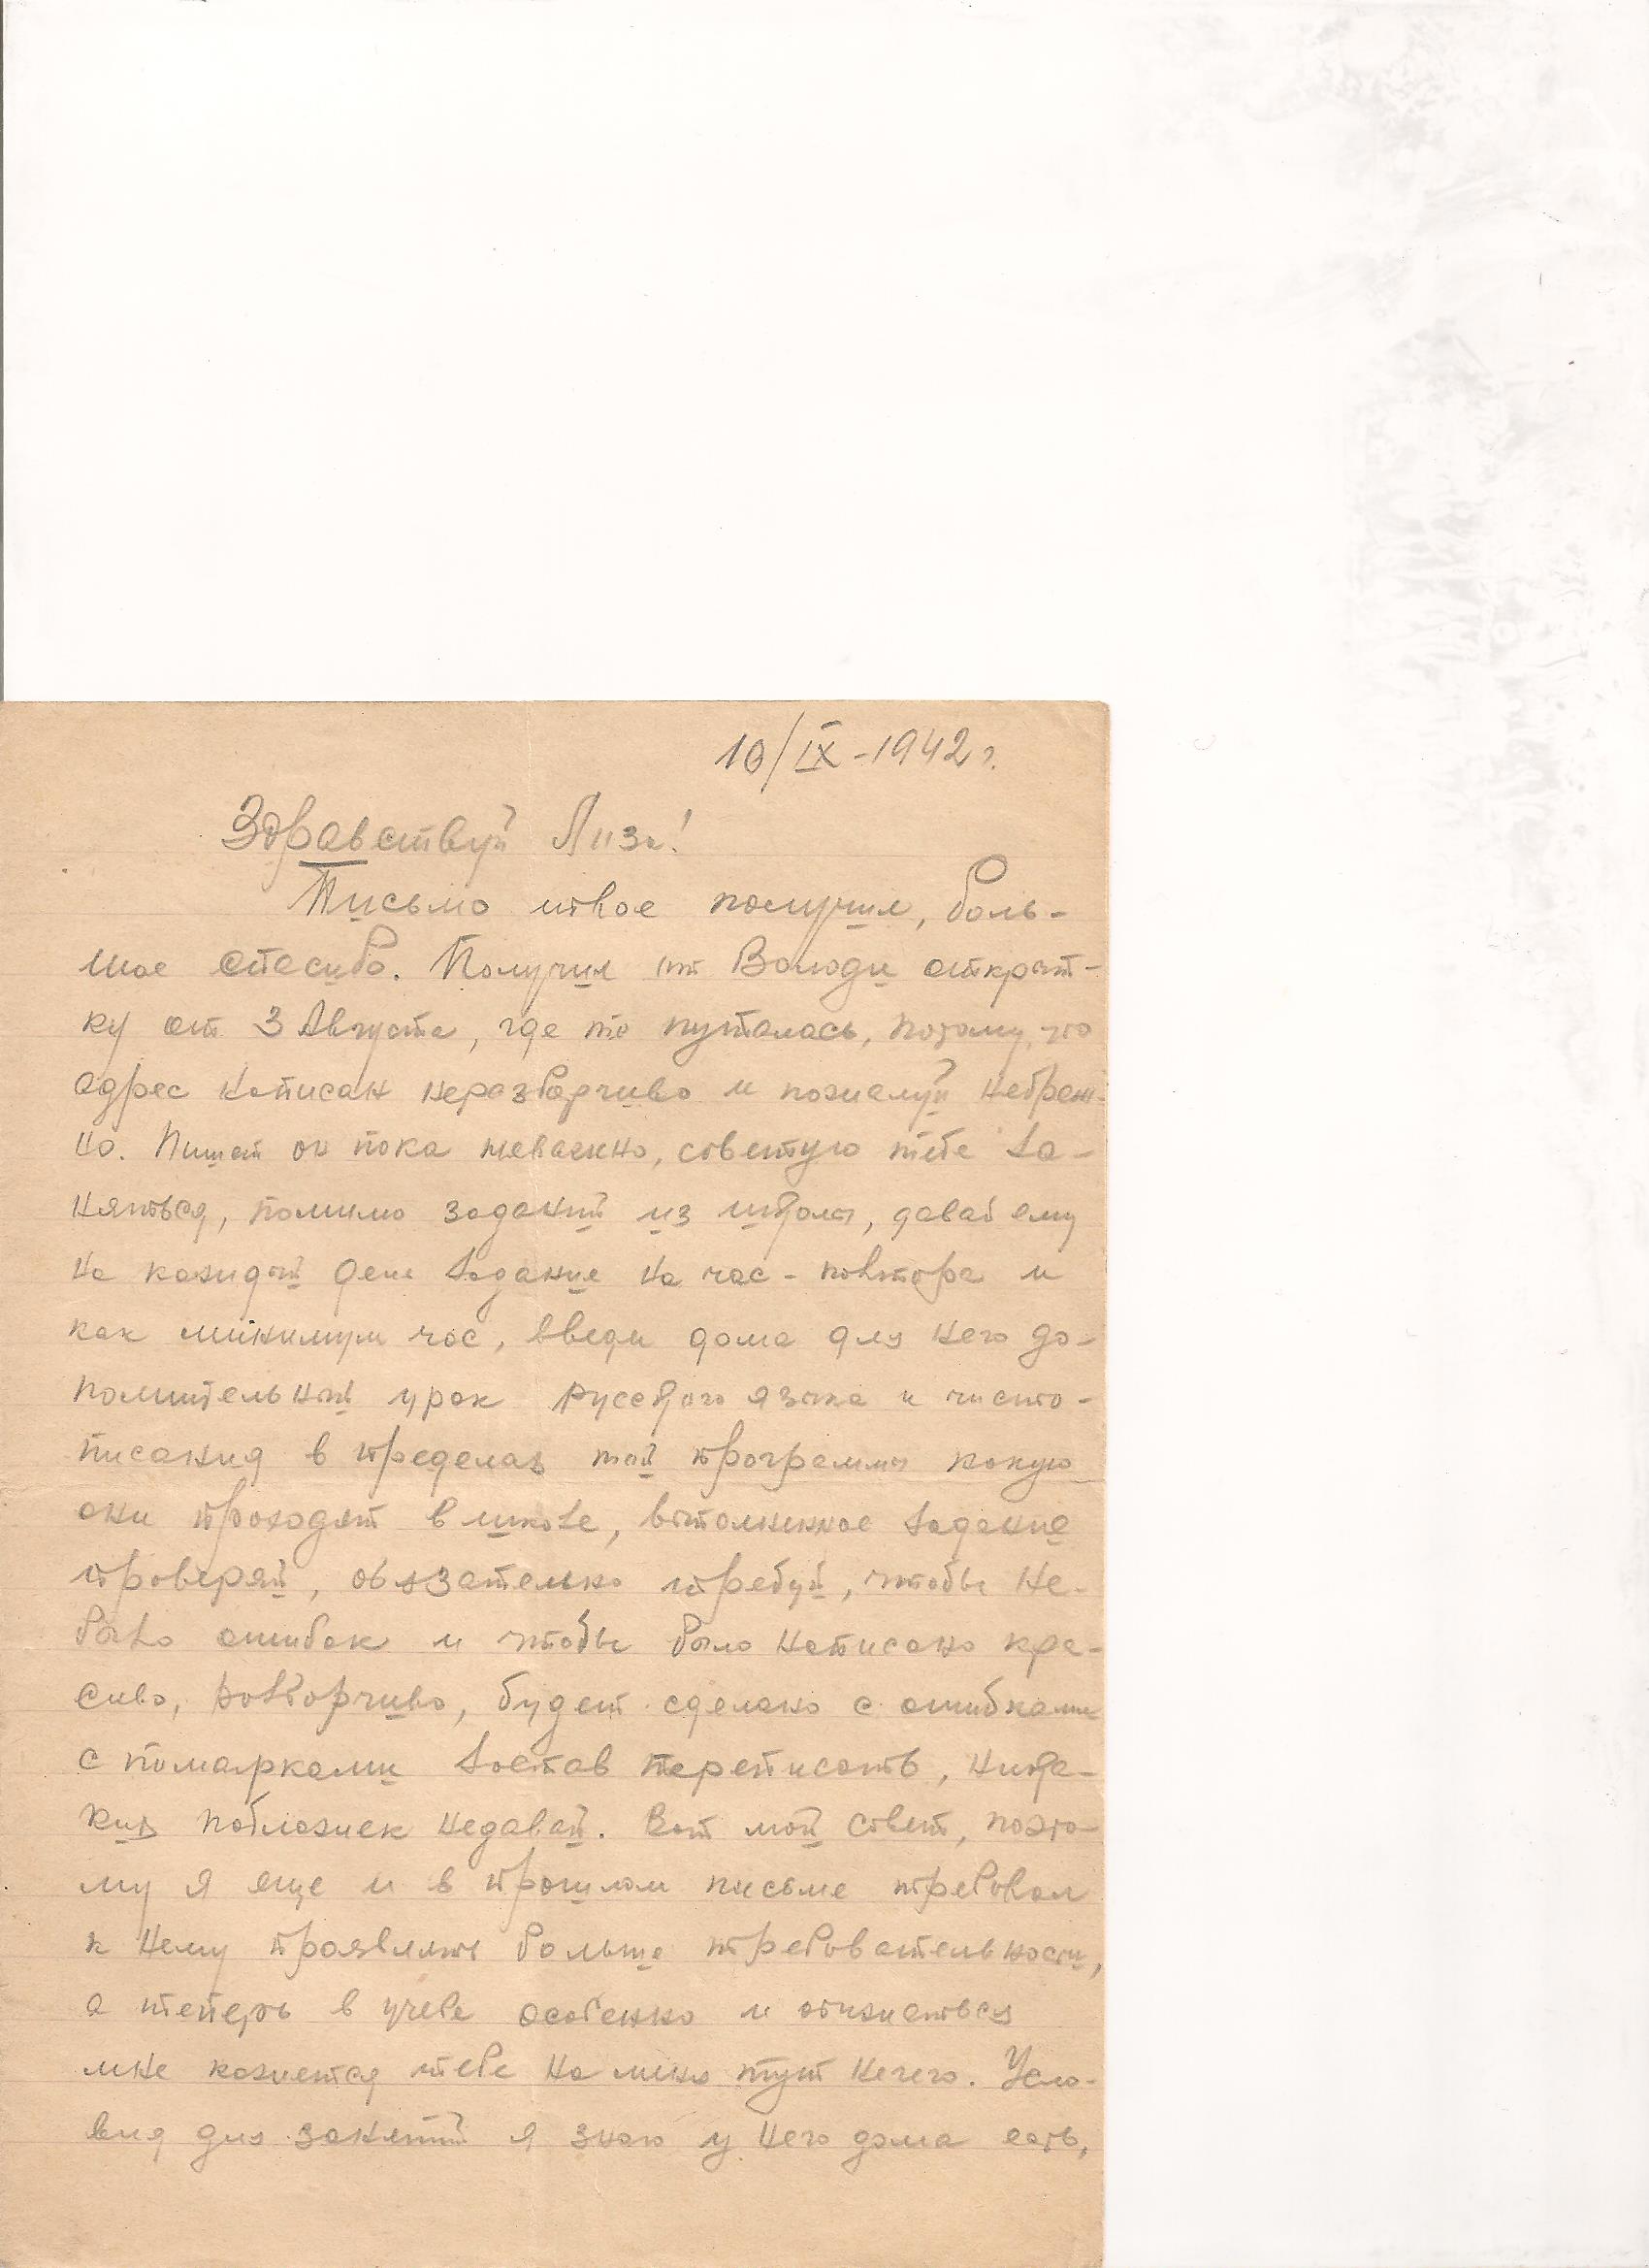 10/IX-1942 г.
Здравствуй Лиза!
Письмо твое получил, боль-
шое спасибо. Получил от Володи открыт-
ку от 3 Августа, где то путалась, потому, что
адрес написан неразборчиво и пожалуй небреж-
но. Пишет он пока неважно, советую тебе за-
няться, помимо заданий из школы, давай ему
на каждый день задание на час - полтора и
как минимум час, введи дома для него до-
полнительный урок русского языка и чисто-
писания в пределах той программы какую
они проходят в школе, выполненное задание
проверяй, обязательно требуй, чтобы не-
было ошибок и чтобы было написано кра-
сиво, разборчиво, будет сделано с ошибками
с помарками заставь переписать, ника-
ких поблажек недавай. Вот мой совет, поэто-
му я еще и в прошлом письме требовал
к нему проявлять больше требовательности,
а теперь в учебе особенно и обижаться
мне кажется тебе на меня тут нечего. Усло-
вия для занятий я знаю у него дома есть,